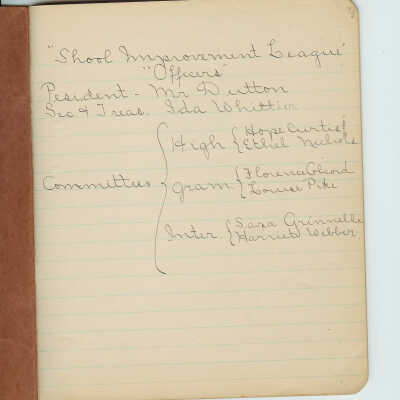 "Shool Improvement League"
"Officers"
Pesident - Mr Dutton
Sec & Treas. Ida Whittier
Committees
High { Hope Curtis
Ethel Nichols
gram { Florence
Louise Pike
Inter. { Sara Grinnelle
Harriet Webber